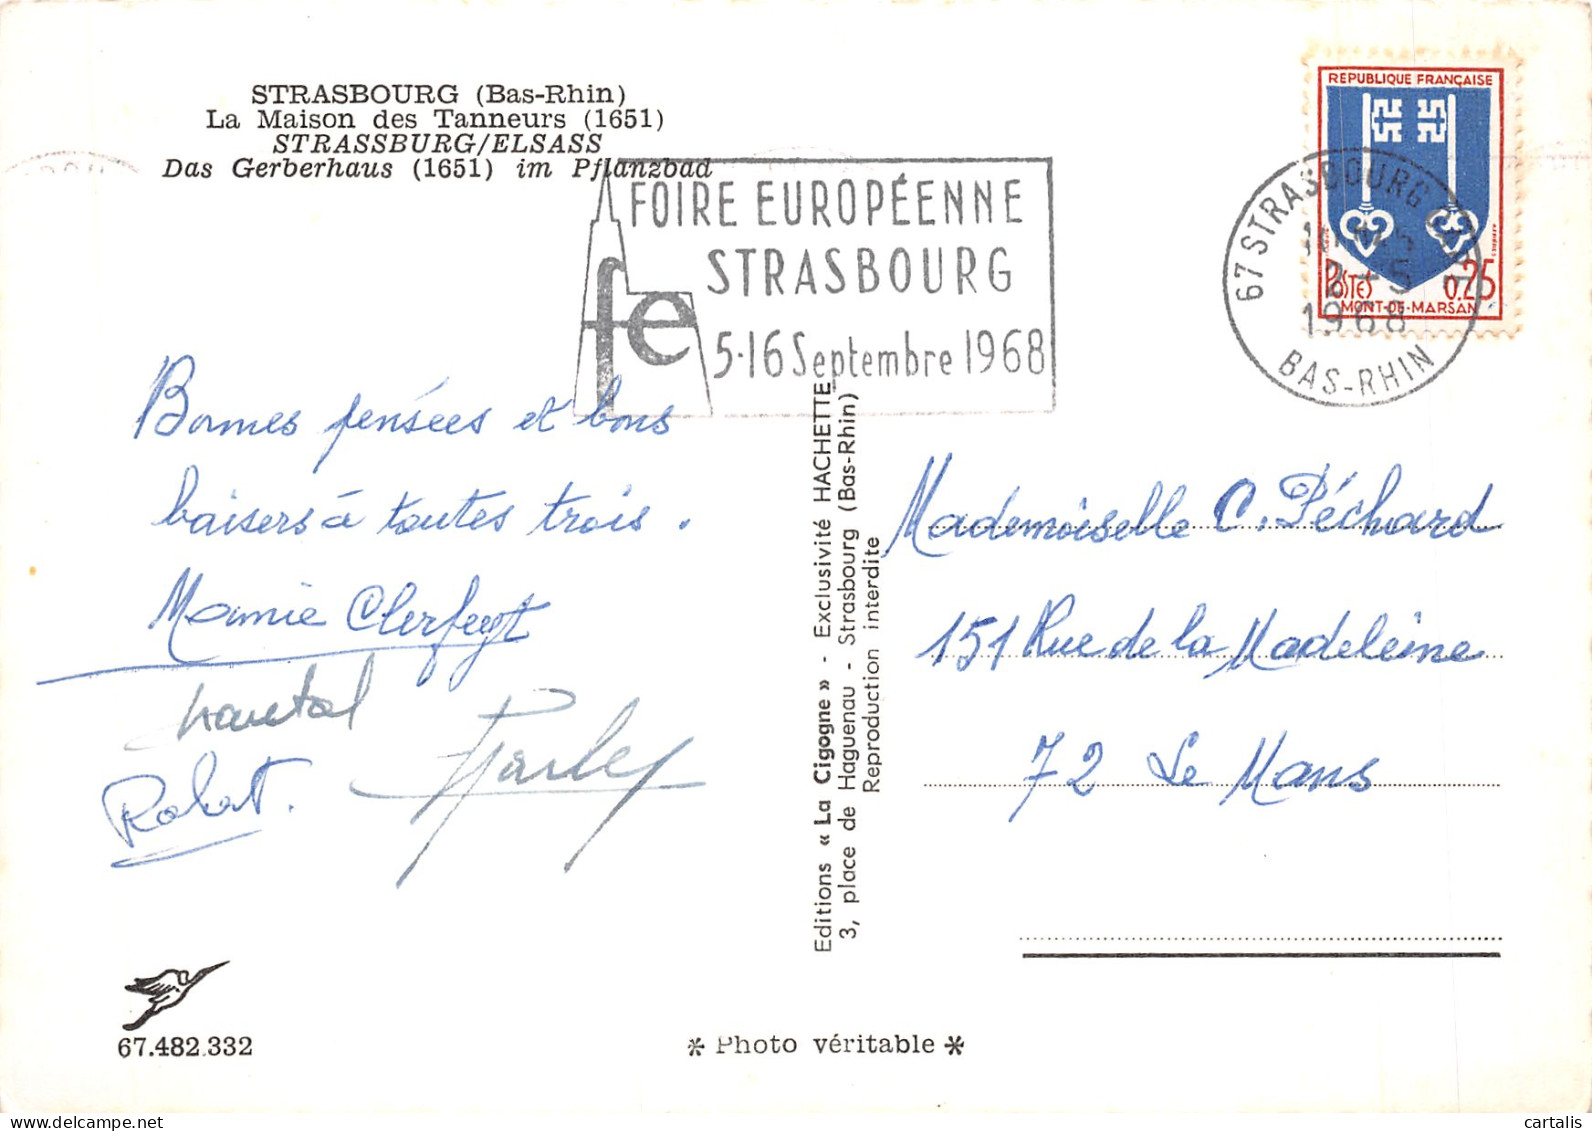 STRASBOURG (Bas-Rhin)
La Maison des Tanneurs (1651)
STRASSBURG/ELSASS
Das Gerberhaus (1651) im Pflanzbad
FOIRE EUROPÉENNE
STRASBOURG
fe
5-16 Septembre 1968
REPUBLIQUE FRANÇAISE
POSTES 0.25
MONT-DE-MARSAN
67 STRASBOURG
2-5
1968
BAS-RHIN
Bonnes pensées et bons
baisers à toutes trois.
Mamie Clerfeyt
Chantal
Robert.
Editions « La Cigogne » - Exclusivité HACHETTE
3, place de Haguenau - Strasbourg (Bas-Rhin)
Reproduction interdite
Mademoiselle C. Péchard
151 Rue de la Madeleine
72 Le Mans
67.482.332
* Photo véritable *
delcampe.net
cartalis